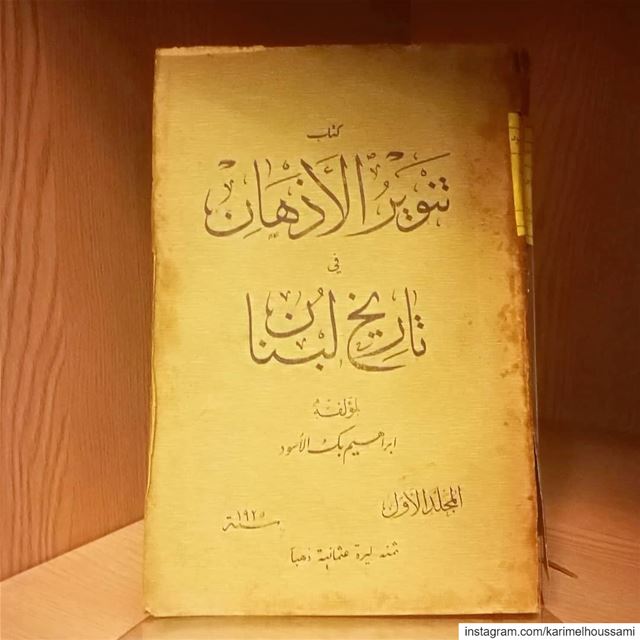 كتاب
تنوير الأذهان
في
تاريخ لبنان
لمؤلفه
ابراهيم بك الأسود
المجلد الأول
سنة ١٩٢٥
ثمنه ليرة عثمانية ذهبا
instagram.com/karimelhoussami